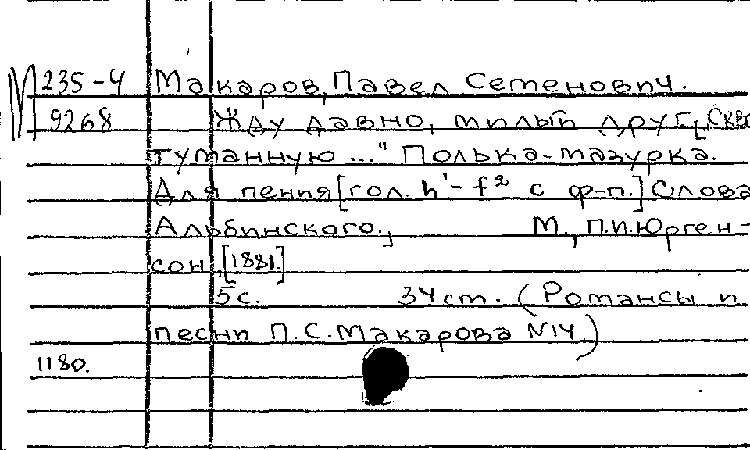 М 235-4 Макаров, Павел Семенович.
9268 Жду давно, милый друг, [Скво
туманную..." Полька-мазурка.
Для пения [гол. h¹-f² с ф-п.] Слова
Альбинского. М., П.И.Юрген-
сон, [1881.]
5с. 34 ст. (Романсы и
песни П.С.Макарова №14)
1180.